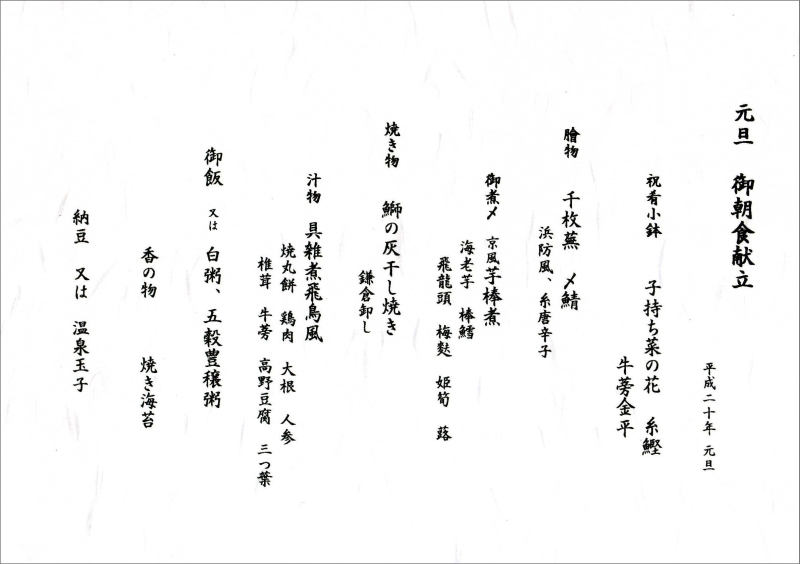 元旦 御朝食献立
平成二十年 元旦
祝肴小鉢 子持ち菜の花 糸鰹
牛蒡金平
膾物 千枚蕪 〆鯖
浜防風、糸唐辛子
御煮〆 京風芋棒煮
海老芋 棒鱈
飛龍頭 梅麩 姫筍 蕗
焼き物 鰤の灰干し焼き
鎌倉卸し
汁物 具雑煮飛鳥風
焼丸餅 鶏肉 大根 人参
椎茸 牛蒡 高野豆腐 三つ葉
御飯 又は 白粥、五穀豊穣粥
香の物 焼き海苔
納豆 又は 温泉玉子